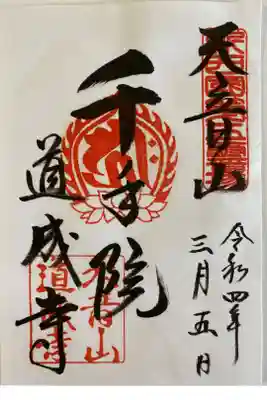 天音山
千手院
道成寺
令和四年
三月五日
天音山
道成寺